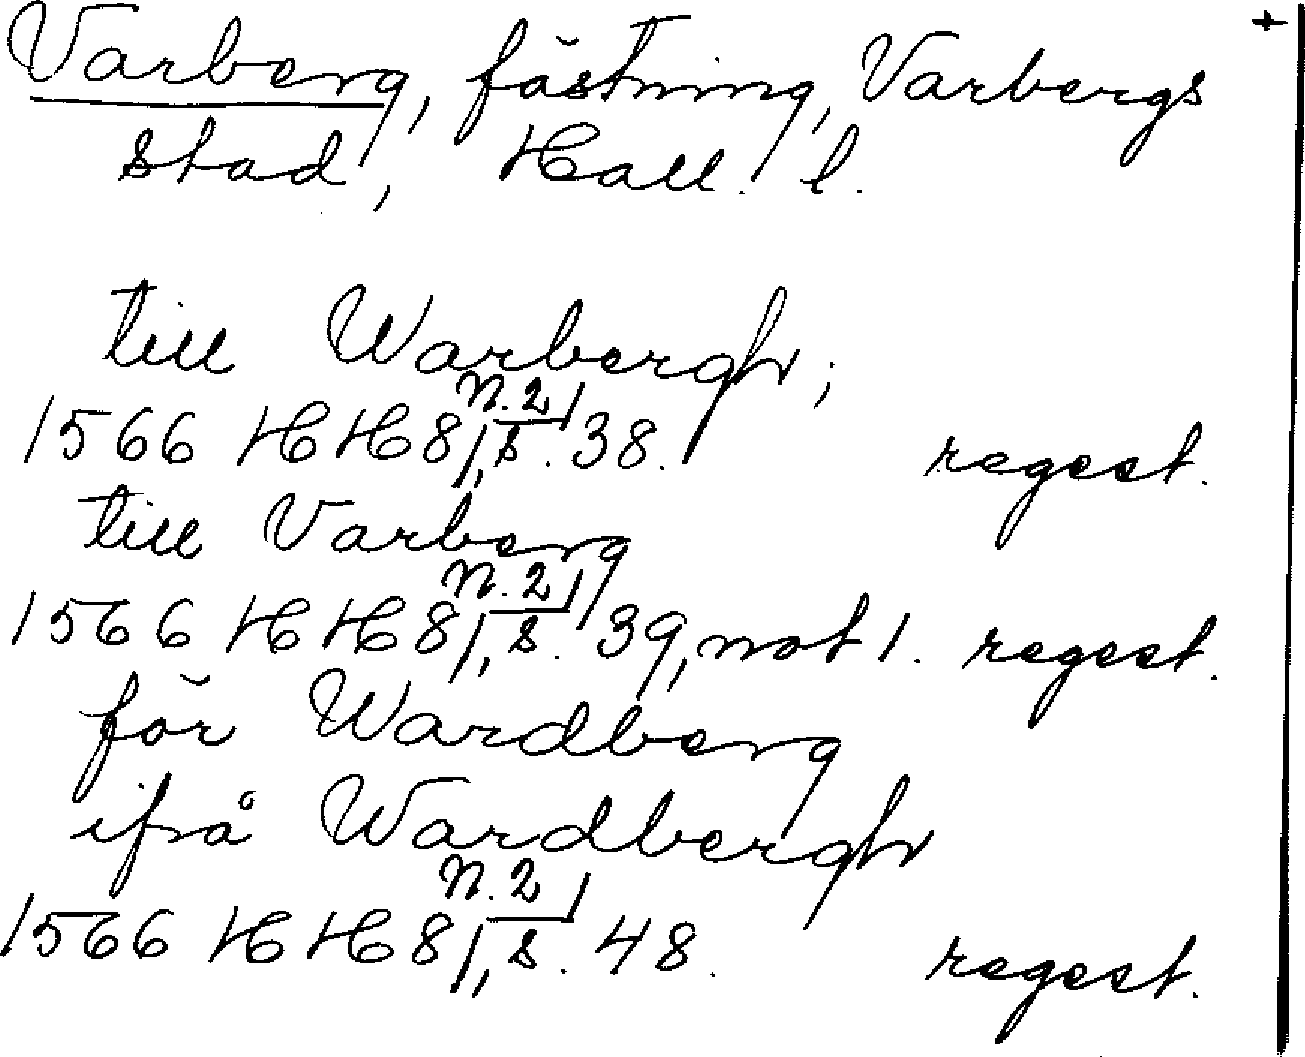 Varberg, fästning, Varbergs +
stad, Hall. l.
till Warbergh;
n. 2
1566 HH 8/, s. 38. regest.
till Varberg
n. 2
1566 HH 8/, s. 39, not 1. regest.
för Wardberg
ifrå Wardbergh
n. 2
1566 HH 8/, s. 48. regest.